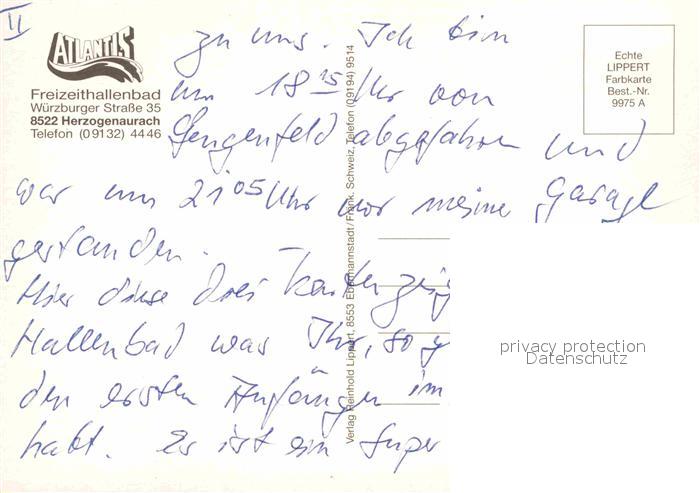 II
ATLANTIS
Freizeithallenbad
Würzburger Straße 35
8522 Herzogenaurach
Telefon (09132) 4446
Echte
LIPPERT
Farbkarte
Best.-Nr.
9975 A
Verlag Reinhold Lippert, 8553 Ebermannstadt/Fränk. Schweiz, Telefon (09194) 9514
zu uns. Ich bin
um 18 15 Uhr von
Lengenfeld abgefahren und
war um 21 05 Uhr vor meine Garage
gestanden.
Hier diese drei Karten zeig
Hallenbad was Ihr, so
den ersten Anfängen im
habt. Es ist ein Super
privacy protection
Datenschutz